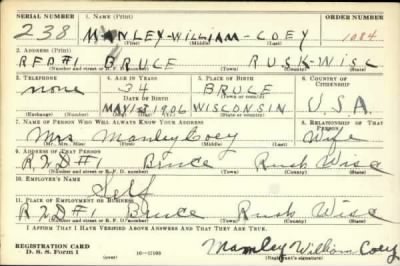 SERIAL NUMBER 1. NAME (Print) ORDER NUMBER
238 MANLEY-WILLIAM-COEY 1084
(First) (Middle) (Last)
2. ADDRESS (Print)
RFD#1 BRUCE RUSK-WISC
(Number and street or R. F. D. number) (Town) (County) (State)
3. TELEPHONE 4. AGE IN YEARS 5. PLACE OF BIRTH 6. COUNTRY OF CITIZENSHIP
none 34 BRUCE
DATE OF BIRTH (Town or county)
MAY 1906 WISCONSIN U.S.A.
(Exchange) (Number) (Mo.) (Day) (Yr.) (State or country)
7. NAME OF PERSON WHO WILL ALWAYS KNOW YOUR ADDRESS 8. RELATIONSHIP OF THAT PERSON
Mrs Manley Coey Wife
(Mr., Mrs., Miss) (First) (Middle) (Last)
9. ADDRESS OF THAT PERSON
R.F.D#1 Bruce Rusk Wisc
(Number and street or R. F. D. number) (Town) (County) (State)
10. EMPLOYER'S NAME
Self
11. PLACE OF EMPLOYMENT OR BUSINESS
R.F.D#1 Bruce Rusk Wisc
(Number and street or R. F. D. number) (Town) (County) (State)
I AFFIRM THAT I HAVE VERIFIED ABOVE ANSWERS AND THAT THEY ARE TRUE.
REGISTRATION CARD
D. S. S. Form 1 16-17105 Manley William Coey
(Registrant's signature)